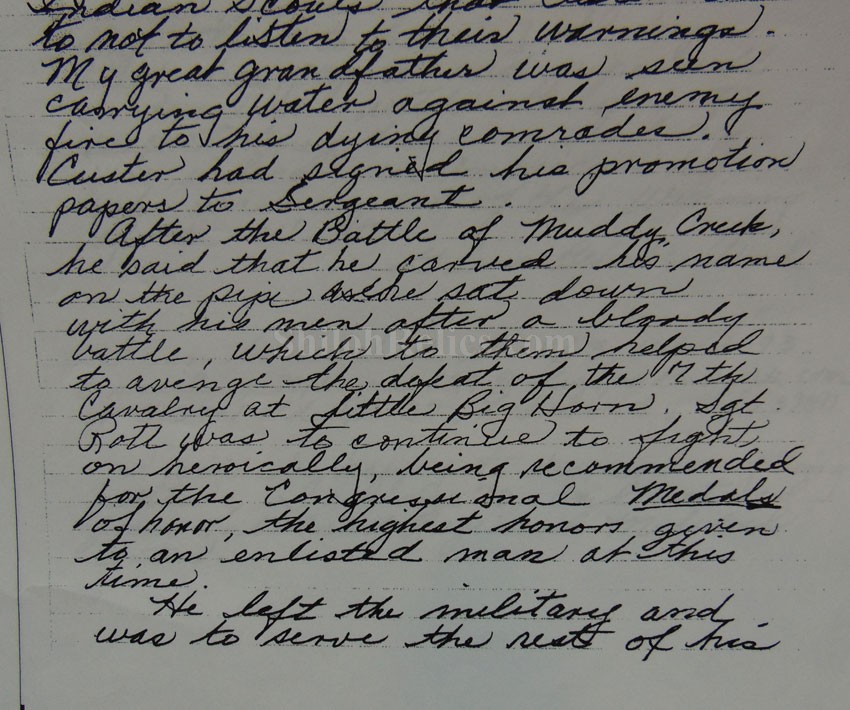 Indian Scouts that
to not to listen to their warnings.
My great grandfather was seen
carrying water against enemy
fire to his dying comrades.
Custer had signed his promotion
papers to Sergeant.
After the Battle of Muddy Creek,
he said that he carved his name
on the pipe as he sat down
with his men after a bloody
battle, which to them helped
to avenge the defeat of the 7th
Cavalry at Little Big Horn. Sgt.
Rott was to continue to fight
on heroically, being recommended
for the Congressional Medals
of honor, the highest honors given
to an enlisted man at this
time.
He left the military and
was to serve the rest of his